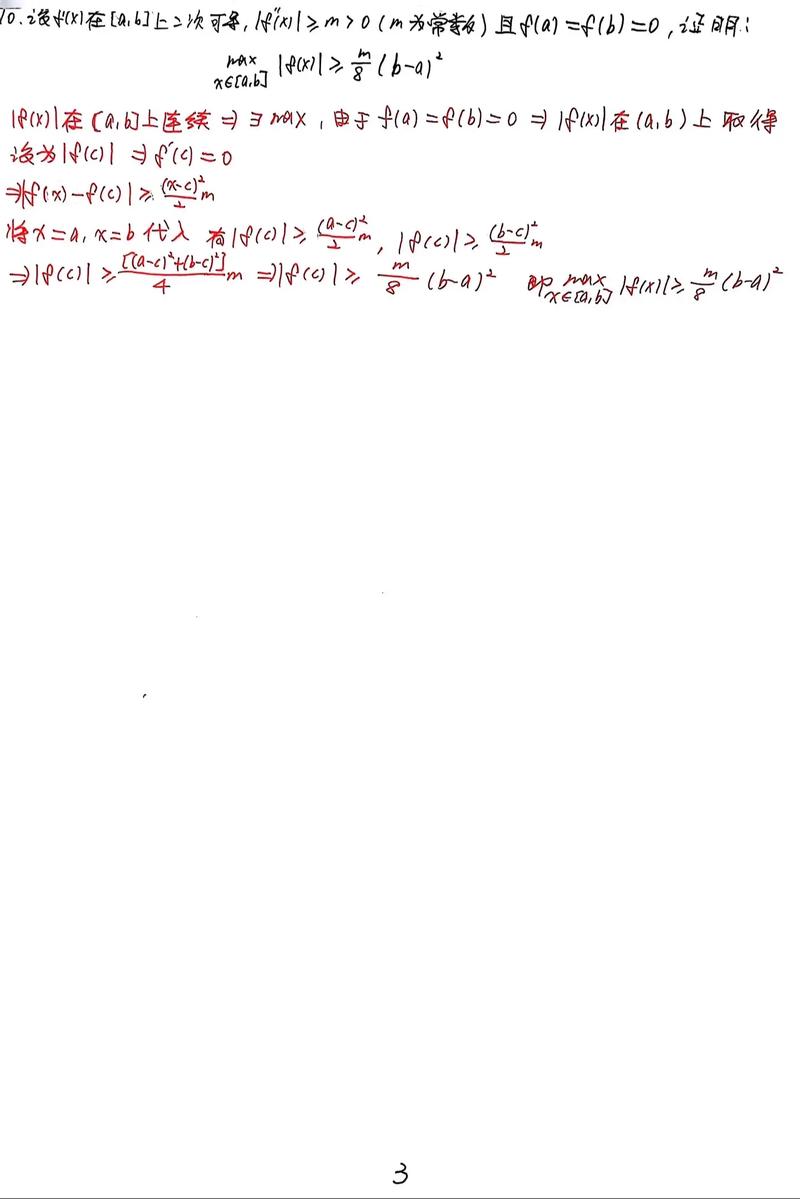 10.设f(x)在[a,b]上二次可导,|f''(x)|≥m>0(m为常数)且f(a)=f(b)=0,证明:
max x∈[a,b] |f(x)|≥m/8(b-a)²
|f(x)|在[a,b]上连续⇒∃max,由于f(a)=f(b)=0⇒|f(x)|在(a,b)上取得
设为|f(c)|⇒f'(c)=0
⇒|f(x)-f(c)|≥(x-c)²/2 m
将x=a,x=b代入 有|f(c)|≥(a-c)²/2 m,|f(c)|≥(b-c)²/2 m
⇒|f(c)|≥[(a-c)²+(b-c)²]/4 m⇒|f(c)|≥m/8(b-a)² 即max x∈[a,b] |f(x)|≥m/8(b-a)²
3